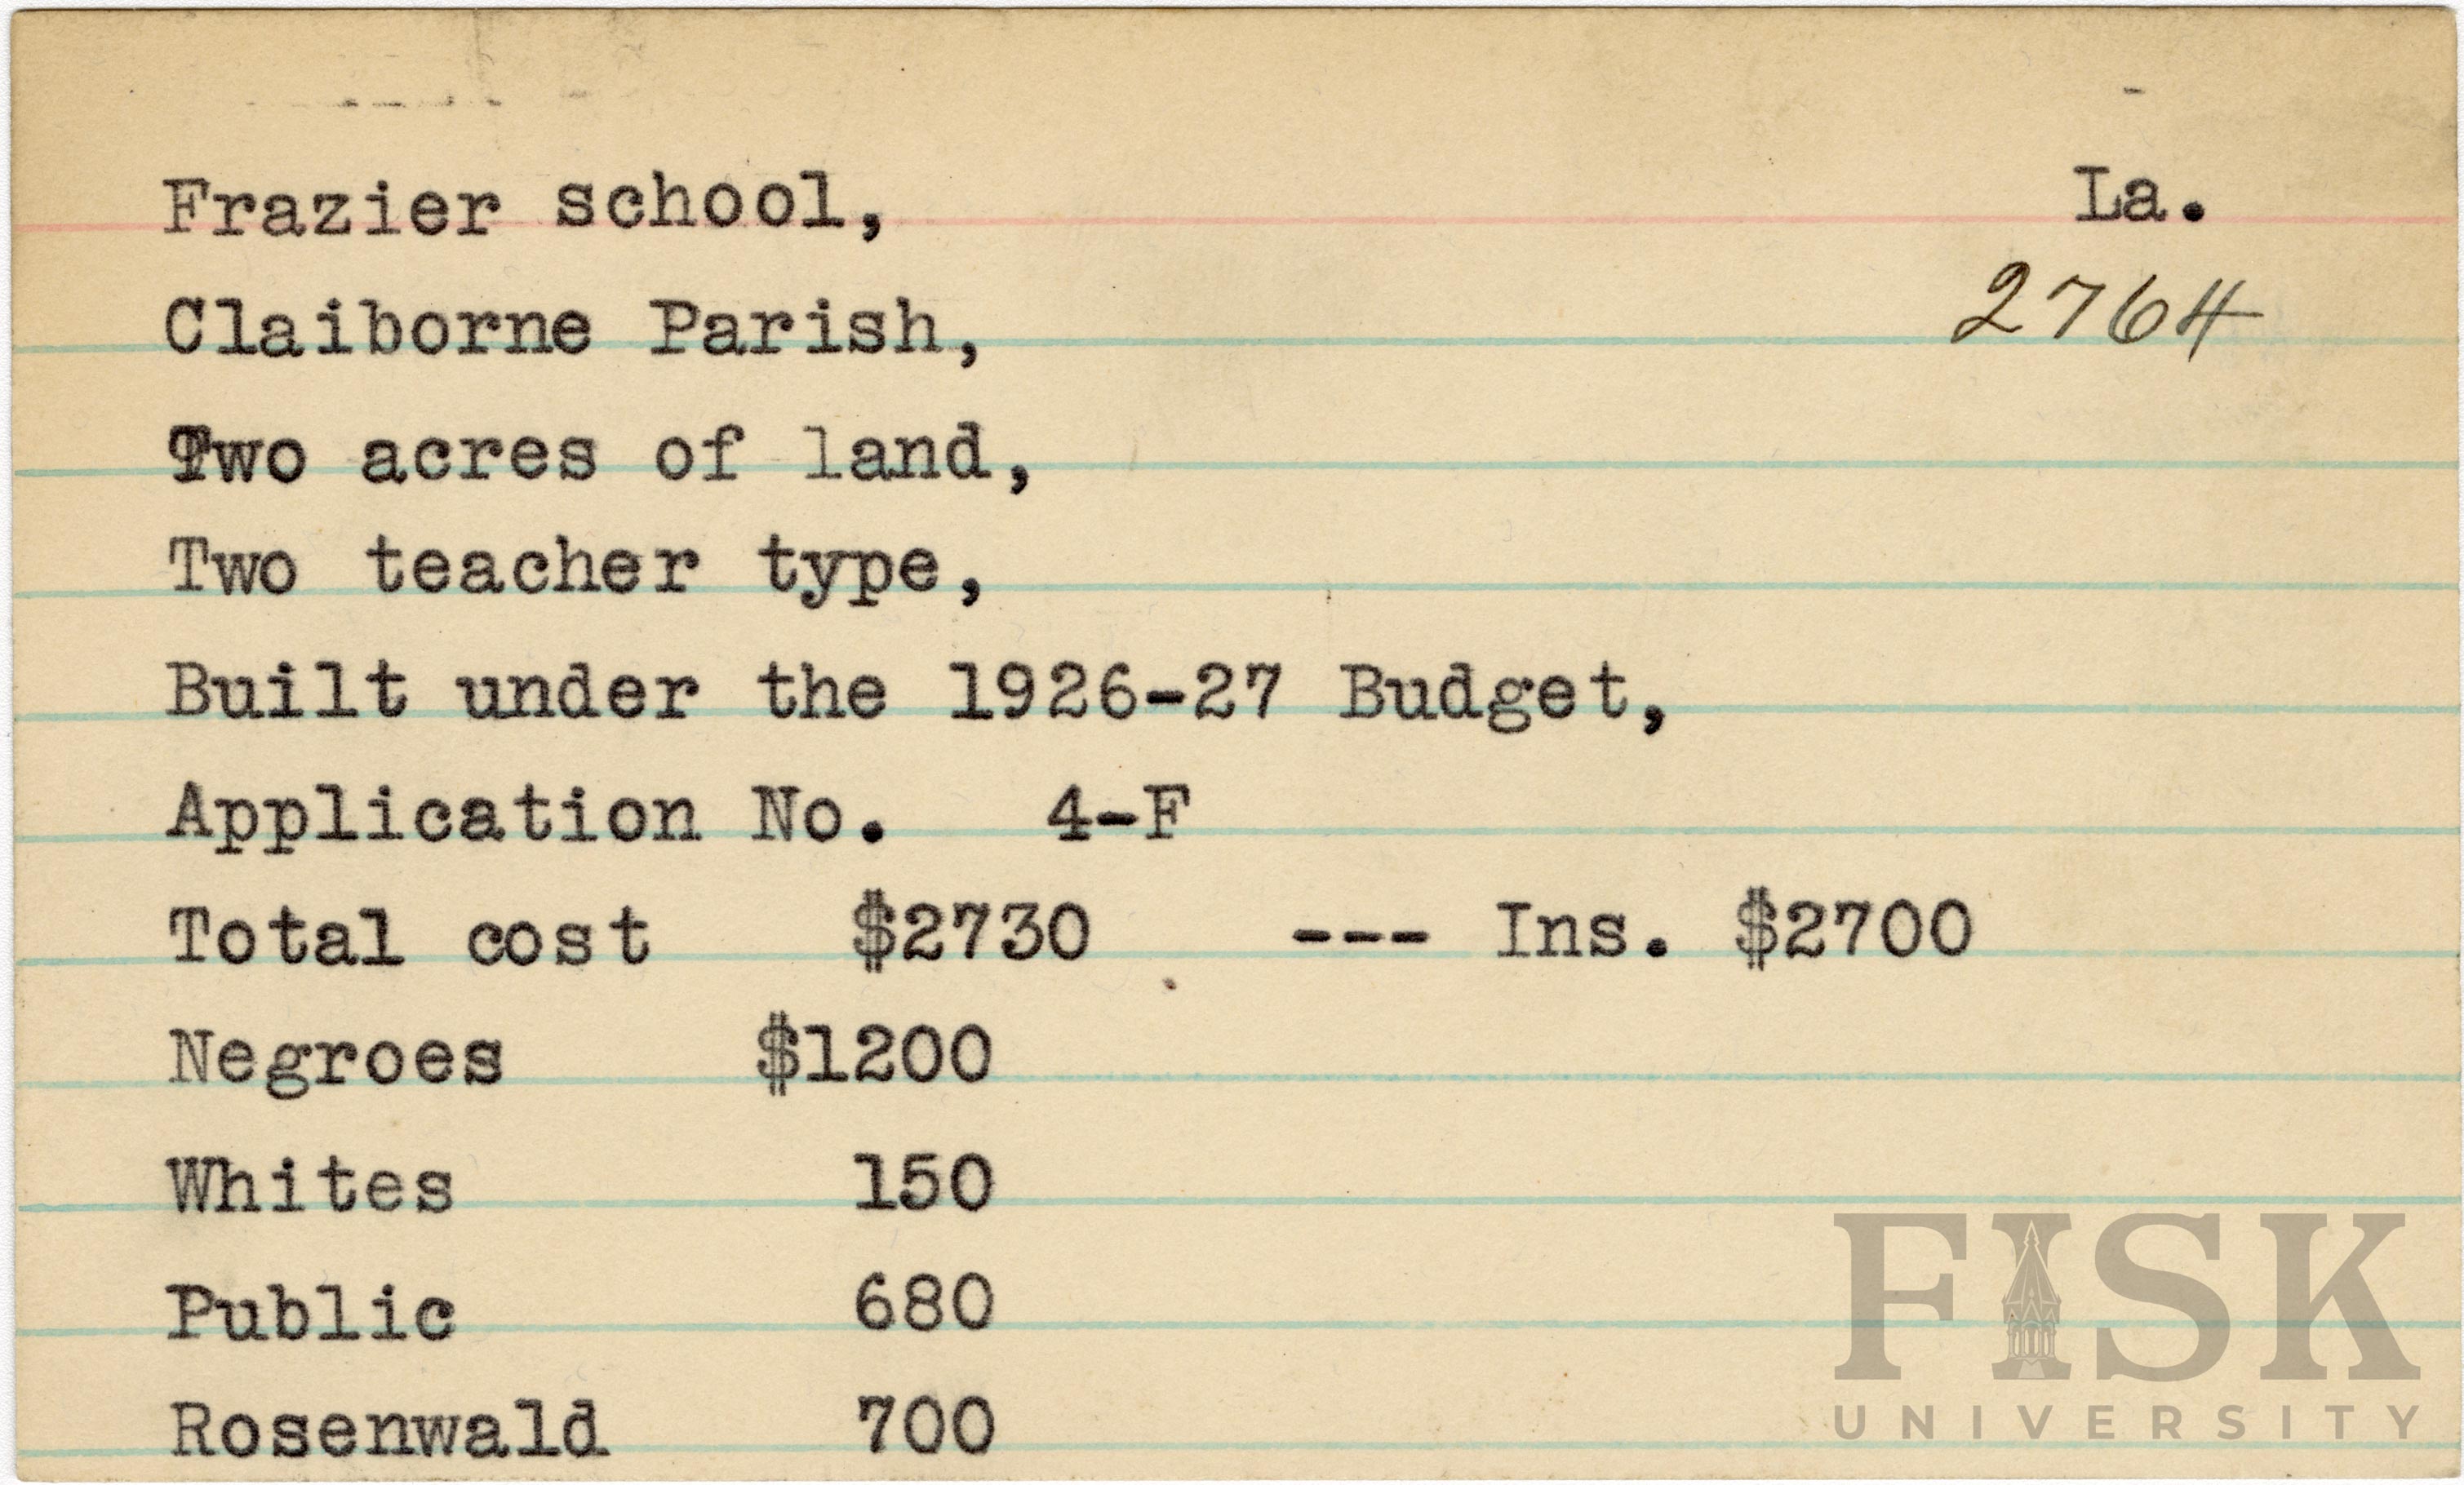 Frazier school, La.
2764
Claiborne Parish,
Two acres of land,
Two teacher type,
Built under the 1926-27 Budget,
Application No. 4-F
Total cost $2730 --- Ins. $2700
Negroes $1200
Whites 150
Public 680
Rosenwald 700
FISK
UNIVERSITY